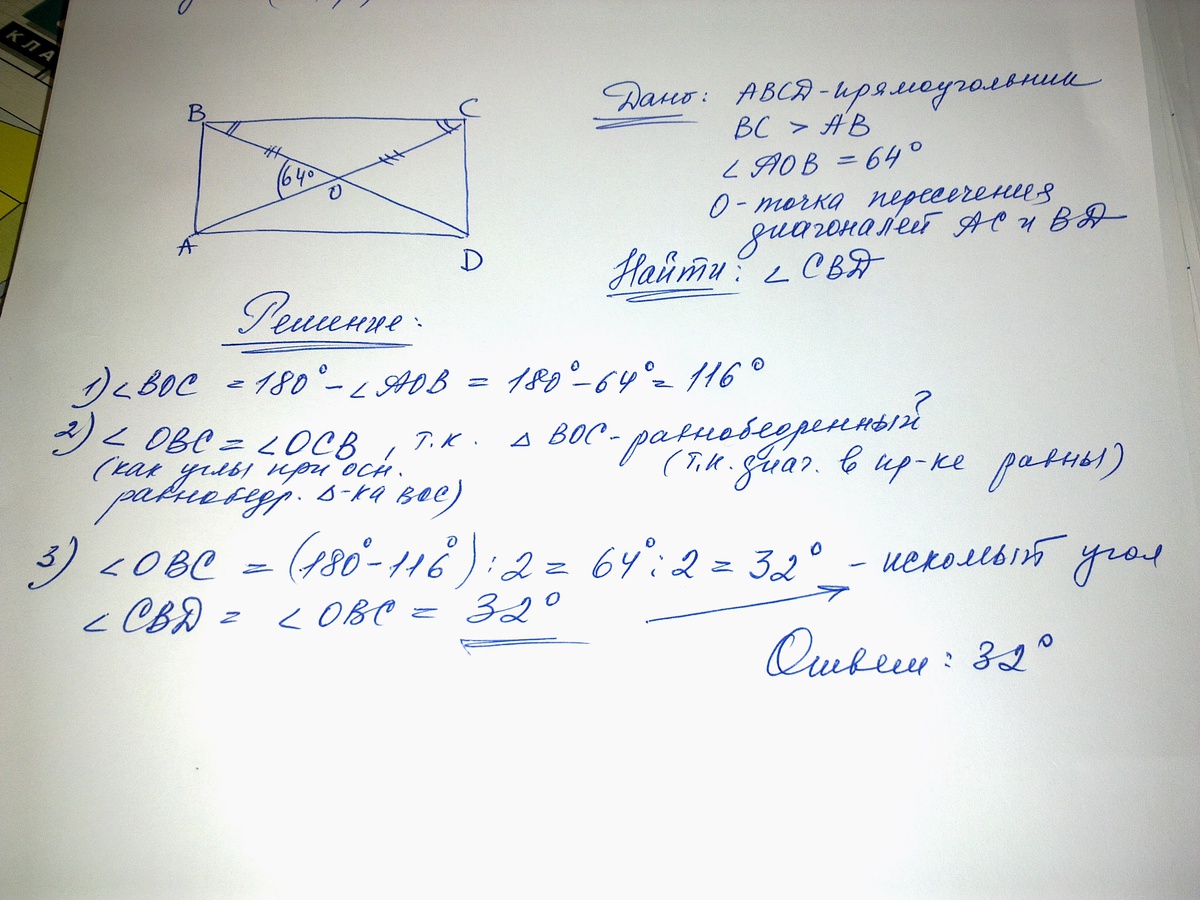 КЛА
B
C
64°
O
A
D
Дано: ABCD - прямоугольник
BC > AB
∠AOB = 64°
O - точка пересечения
диагоналей AC и BD
Найти: ∠CBD
Решение:
1) ∠BOC = 180° - ∠AOB = 180° - 64° = 116°
2) ∠OBC = ∠OCB, т.к. △BOC - равнобедренный?
(как углы при осн.
равнобедр. △-ка BOC)
(т.к. диаг. в пр-ке равны)
3) ∠OBC = (180° - 116°) : 2 = 64° : 2 = 32° - искомый угол
∠CBD = ∠OBC = 32°
Ответ: 32°